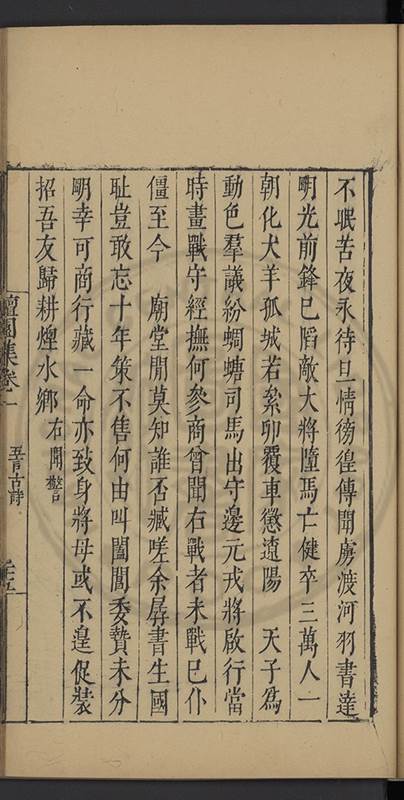 不眠苦夜永待旦情徬徨傳聞虜渡河羽書達
明光前鋒已陷敵大將墮馬亡健卒三萬人一
朝化犬羊孤城若絫卵覆車懲遼陽　天子為
動色羣議紛蜩螗司馬出守邊元戎將啟行當
時畫戰守經撫何參商曾聞右戰者未戰已仆
僵至今　廟堂閒莫知誰否臧嗟余孱書生國
耻豈敢忘十年策不售何由叫閶闔委贄未分
明幸可商行藏一命亦致身將母或不遑促裝
招吾友歸耕煙水鄉右聞警
集卷一
五言古詩